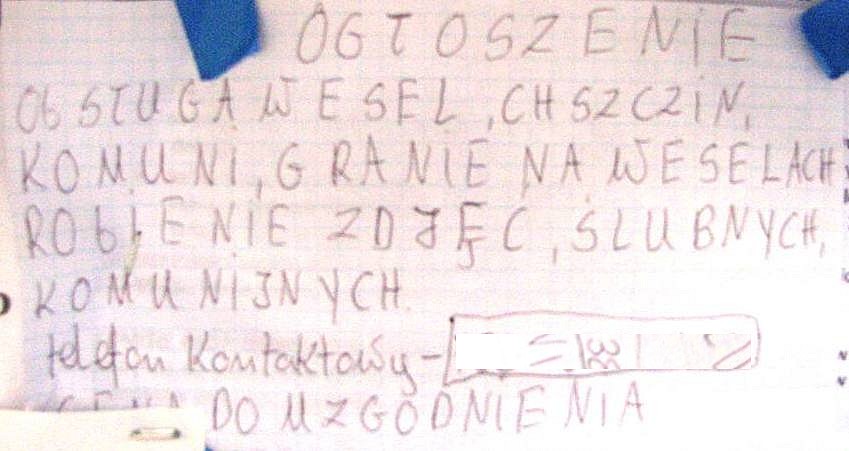 OGŁOSZENIE
ObSŁUGA WESEL, CHSZCZIN,
KOMUNI, GRANIE NA WESELACH
RObIENIE ZDJĘC, SLUBNYCH,
KOMUNIJNYCH.
telefon Kontaktowy -
CENA DO UZGODNIENIA